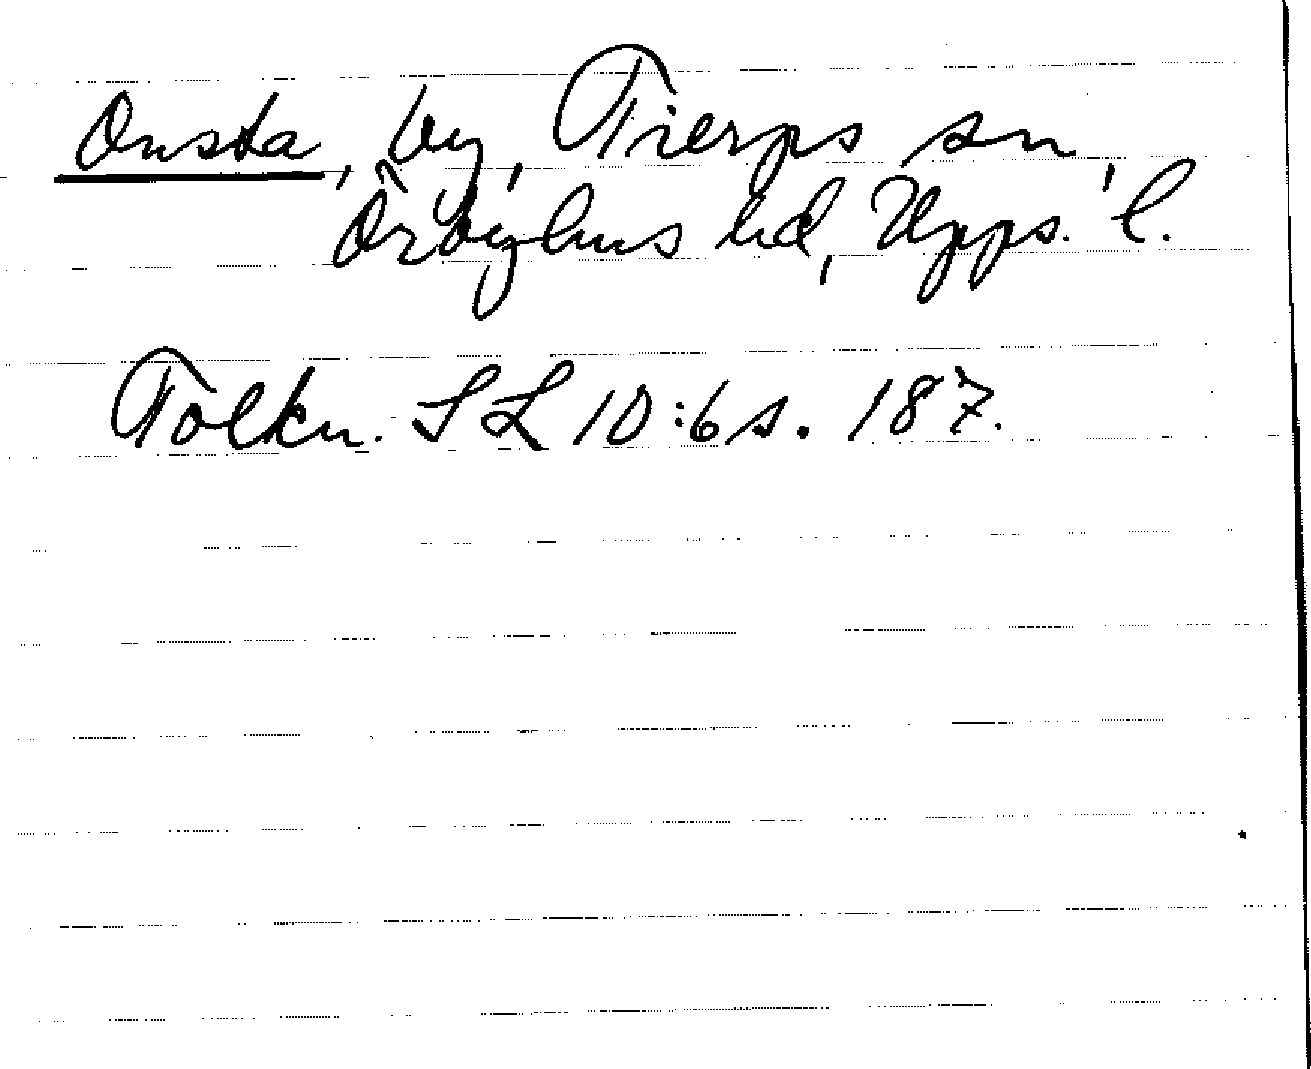 Onsta, by, Tierps sn,
Örbyhus hd, Upps. l.
Tolkn. SL 10:6 s. 187.